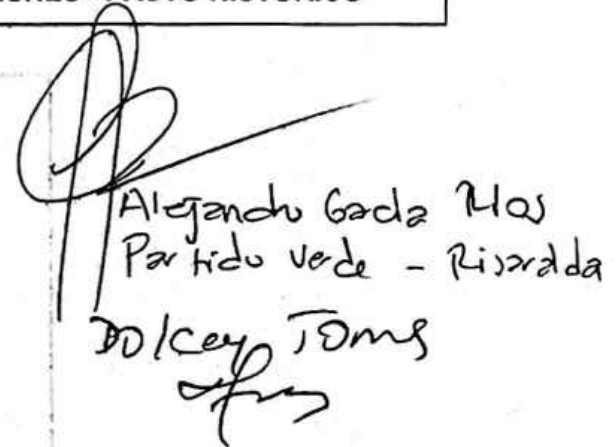 Alejandro García Ríos
Partido Verde - Risaralda
Dolcey Torres